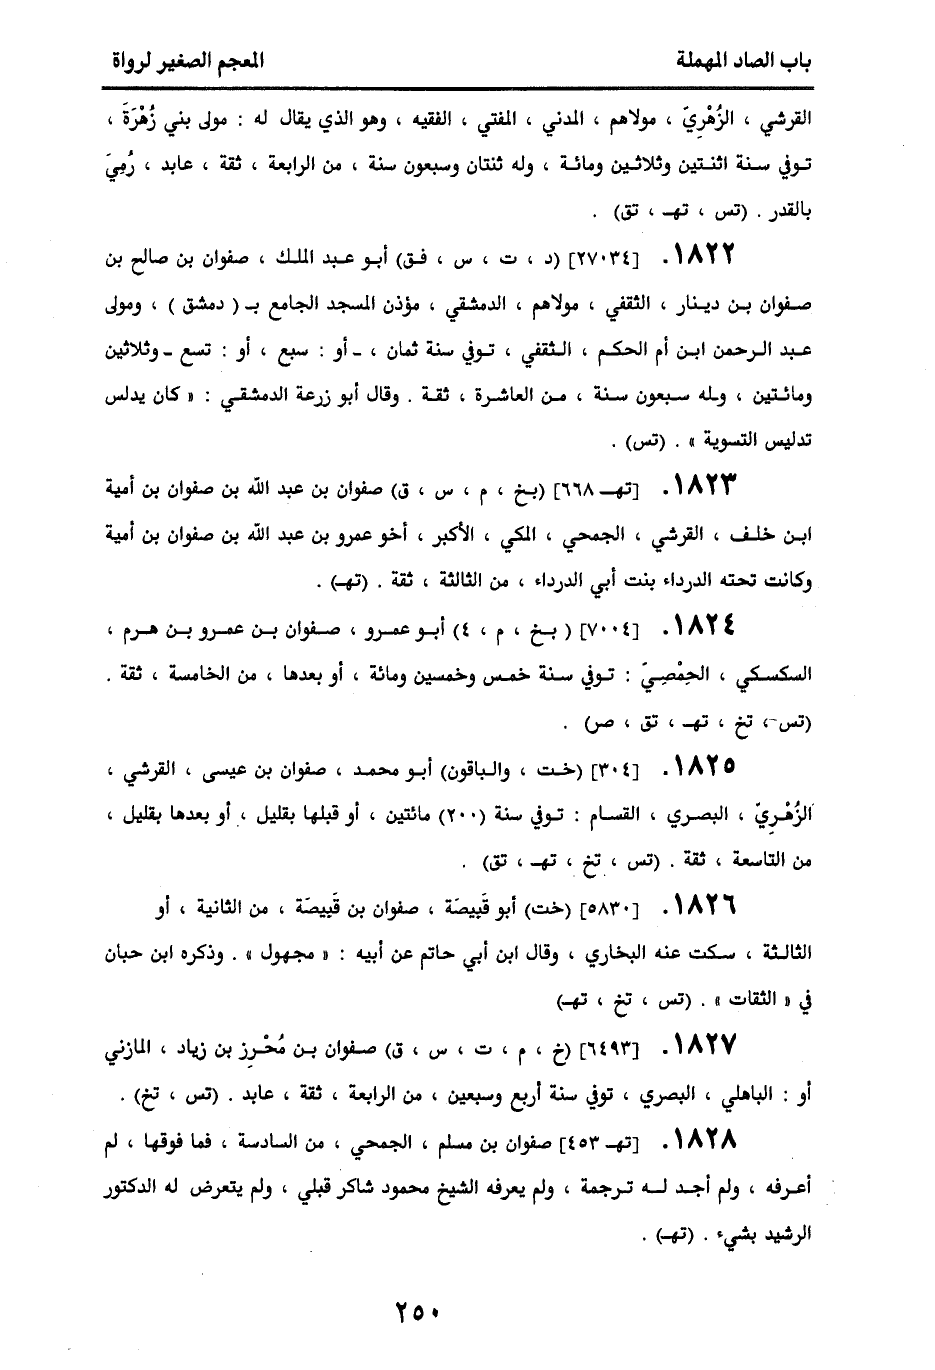 باب الصاد المهملة
المعجم الصغير لرواة
القرشي ، الزُهْرِيّ ، مولاهم ، المدني ، المفتي ، الفقيه ، وهو الذي يقال له : مولى بني زُهْرَةَ ،
توفي سنة اثنتين وثلاثين ومائة ، وله ثنتان وسبعون سنة ، من الرابعة ، ثقة ، عابد ، رُمِيَ
بالقدر . (تس ، تهـ ، تق) .
١٨٢٢. [٢٧٠٣٤] (د ، ت ، س ، فق) أبو عبد الملك ، صفوان بن صالح بن
صفوان بن دينار ، الثقفي ، مولاهم ، الدمشقي ، مؤذن المسجد الجامع بـ ( دمشق ) ، ومولى
عبد الرحمن ابن أم الحكم ، الثقفي ، توفي سنة ثمان ، ـ أو : سبع ، أو : تسع ـ وثلاثين
ومائتين ، وله سبعون سنة ، من العاشرة ، ثقة . وقال أبو زرعة الدمشقي : « كان يدلس
تدليس التسوية » . (تس) .
١٨٢٣. [تهـ ٦٦٨] (بخ ، م ، س ، ق) صفوان بن عبد الله بن صفوان بن أمية
ابن خلف ، القرشي ، الجمحي ، المكي ، الأكبر ، أخو عمرو بن عبد الله بن صفوان بن أمية
وكانت تحته الدرداء بنت أبي الدرداء ، من الثالثة ، ثقة . (تهـ) .
١٨٢٤. [٧٠٠٤] ( بخ ، م ، ٤) أبو عمرو ، صفوان بن عمرو بن هرم ،
السكسكي ، الحِمْصِيّ : توفي سنة خمس وخمسين ومائة ، أو بعدها ، من الخامسة ، ثقة .
(تس ، تخ ، تهـ ، تق ، صر) .
١٨٢٥. [٣٠٤] (خت ، والباقون) أبو محمد ، صفوان بن عيسى ، القرشي ،
الزُهْرِيّ ، البصري ، القسام : توفي سنة (٢٠٠) مائتين ، أو قبلها بقليل ، أو بعدها بقليل ،
من التاسعة ، ثقة . (تس ، تخ ، تهـ ، تق) .
١٨٢٦. [٥٨٣٠] (خت) أبو قَبِيصَة ، صفوان بن قَبِيصَة ، من الثانية ، أو
الثالثة ، سكت عنه البخاري ، وقال ابن أبي حاتم عن أبيه : « مجهول » . وذكره ابن حبان
في « الثقات » . (تس ، تخ ، تهـ)
١٨٢٧. [٦٤٩٣] (خ ، م ، ت ، س ، ق) صفوان بن مُحْرِز بن زياد ، المازني
أو : الباهلي ، البصري ، توفي سنة أربع وسبعين ، من الرابعة ، ثقة ، عابد . (تس ، تخ) .
١٨٢٨. [تهـ ٤٥٣] صفوان بن مسلم ، الجمحي ، من السادسة ، فما فوقها ، لم
أعرفه ، ولم أجد له ترجمة ، ولم يعرفه الشيخ محمود شاكر قبلي ، ولم يتعرض له الدكتور
الرشيد بشيء . (تهـ) .
٢٥٠